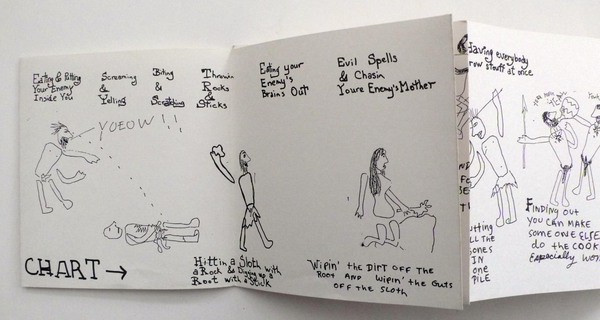 Eating & Putting
Your Enemy
Inside You
Screaming
&
Yelling
Biting
&
Scratching
Throwin
Rocks
&
Sticks
Eating your
Enemy's
Brains Out
Evil Spells
& Chasin
Youre Enemy's Mother
Having everybody
row stouff at once
YOEOW!!
CHART →
Hittin a Sloth w
a Rock & Diging up a
Root with a Stick
Wipin' the DIRT OFF THE
ROOT AND Wipin' the Guts
OFF the SLOTH
utting
LL THE
ones
IN
one
PILE
FINDING out
YOU CAN MAKE
SOMEONE ELSE
do the COOK
Especially WOM